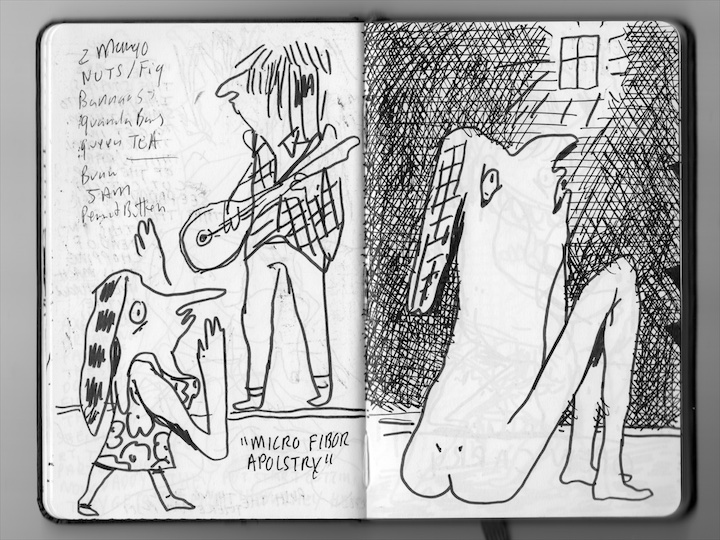 2 Mango
NUTS/Fig
Bannanas
quanula Bars
queen TEA
5 AM
PeanutButter
"MICRO FIBOR
APOLSTRY"